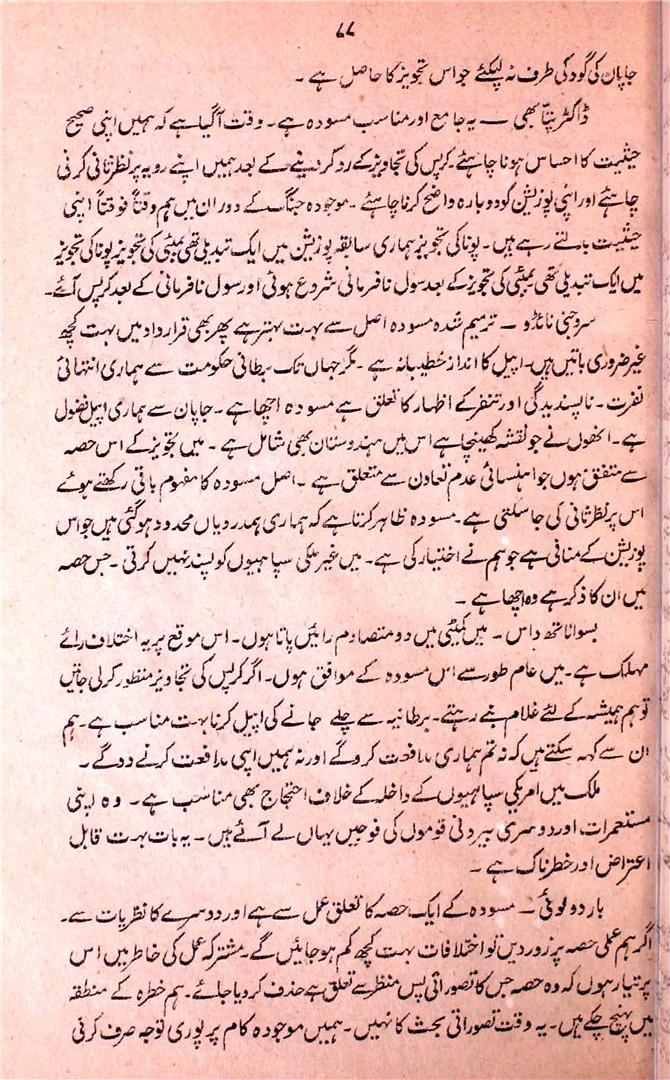 ۷۷
جاپان کی گود کی طرف نہ لپکئے جو اس تجویز کا حاصل ہے ۔
ڈاکٹر پتا بھی — یہ جامع اور مناسب مسودہ ہے۔ وقت آگیا ہے کہ ہمیں اپنی صحیح
حیثیت کا احساس ہونا چاہئے۔ کرپس کی تجاویز کے رد کر دینے کے بعد ہمیں اپنے رویہ پر نظر ثانی کرنی
چاہئے اور اپنی پوزیشن کو دوبارہ واضح کرنا چاہئے ۔ موجودہ جنگ کے دوران میں ہم وقتاً فوقتاً اپنی
حیثیت بدلتے رہے ہیں۔ پونا کی تجویز ہماری سابقہ پوزیشن میں ایک تبدیلی تھی بمبئی کی تجویز پونا کی تجویز
میں ایک تبدیلی تھی بمبئی کی تجویز کے بعد سول نافرمانی شروع ہوئی اور سول نافرمانی کے بعد کرپس آئے۔
سروجنی نائڈو — ترمیم شدہ مسودہ اصل سے بہت بہتر ہے پھر بھی قرارداد میں بہت کچھ
غیر ضروری باتیں ہیں۔ اپیل کا انداز خطیبانہ ہے ۔ مگر جہاں تک برطانی حکومت سے ہماری انتہائی
نفرت ۔ ناپسندیدگی اور تنفر کے اظہار کا تعلق ہے مسودہ اچھا ہے۔ جاپان سے ہماری اپیل فضول
ہے۔ انھوں نے جو نقشہ کھینچا ہے اس میں ہندوستان بھی شامل ہے ۔ میں تجویز کے اس حصہ
سے متفق ہوں جو اہنسائی عدم تعاون سے متعلق ہے ۔ اصل مسودہ کا مفہوم باقی رکھتے ہوئے
اس پر نظر ثانی کی جاسکتی ہے۔ مسودہ ظاہر کرتا ہے کہ ہماری ہمدردیاں محدود ہوگئی ہیں جو اس
پوزیشن کے منافی ہے جو ہم نے اختیار کی ہے۔ میں غیر ملکی سپاہیوں کو پسند نہیں کرتی ۔ جس حصہ
میں ان کا ذکر ہے وہ اچھا ہے ۔
بسواناتھ داس ۔ میں کمیٹی میں دو متصادم رائیں پاتا ہوں۔ اس موقع پر یہ اختلاف رائے
مہلک ہے۔ میں عام طور سے اس مسودہ کے موافق ہوں۔ اگر کرپس کی تجاویز منظور کرلی جاتیں
تو ہم ہمیشہ کے لئے غلام بنے رہتے۔ برطانیہ سے چلے جانے کی اپیل کرنا بہت مناسب ہے۔ ہم
ان سے کہہ سکتے ہیں کہ نہ تم ہماری مدافعت کروگے اور نہ ہمیں اپنی مدافعت کرنے دوگے ۔
ملک میں امریکی سپاہیوں کے داخلہ کے خلاف احتجاج بھی مناسب ہے۔ وہ اپنی
مستعمرات اور دوسری بیرونی قوموں کی فوجیں یہاں لے آئے ہیں ۔ یہ بات بہت قابل
اعتراض اور خطرناک ہے ۔
باردولوئی — مسودہ کے ایک حصہ کا تعلق عمل سے ہے اور دوسرے کا نظریات سے۔
اگر ہم عملی حصہ پر زور دیں تو اختلافات بہت کچھ کم ہو جائیں گے۔ مشترکہ عمل کی خاطر میں اس
پر تیار ہوں کہ وہ حصہ جس کا تصوراتی پس منظر سے تعلق ہے حذف کر دیا جائے۔ ہم خطرہ کے منطقہ
میں پہنچ چکے ہیں۔ یہ وقت تصوراتی بحث کا نہیں۔ ہمیں موجودہ کام پر پوری توجہ صرف کرنی